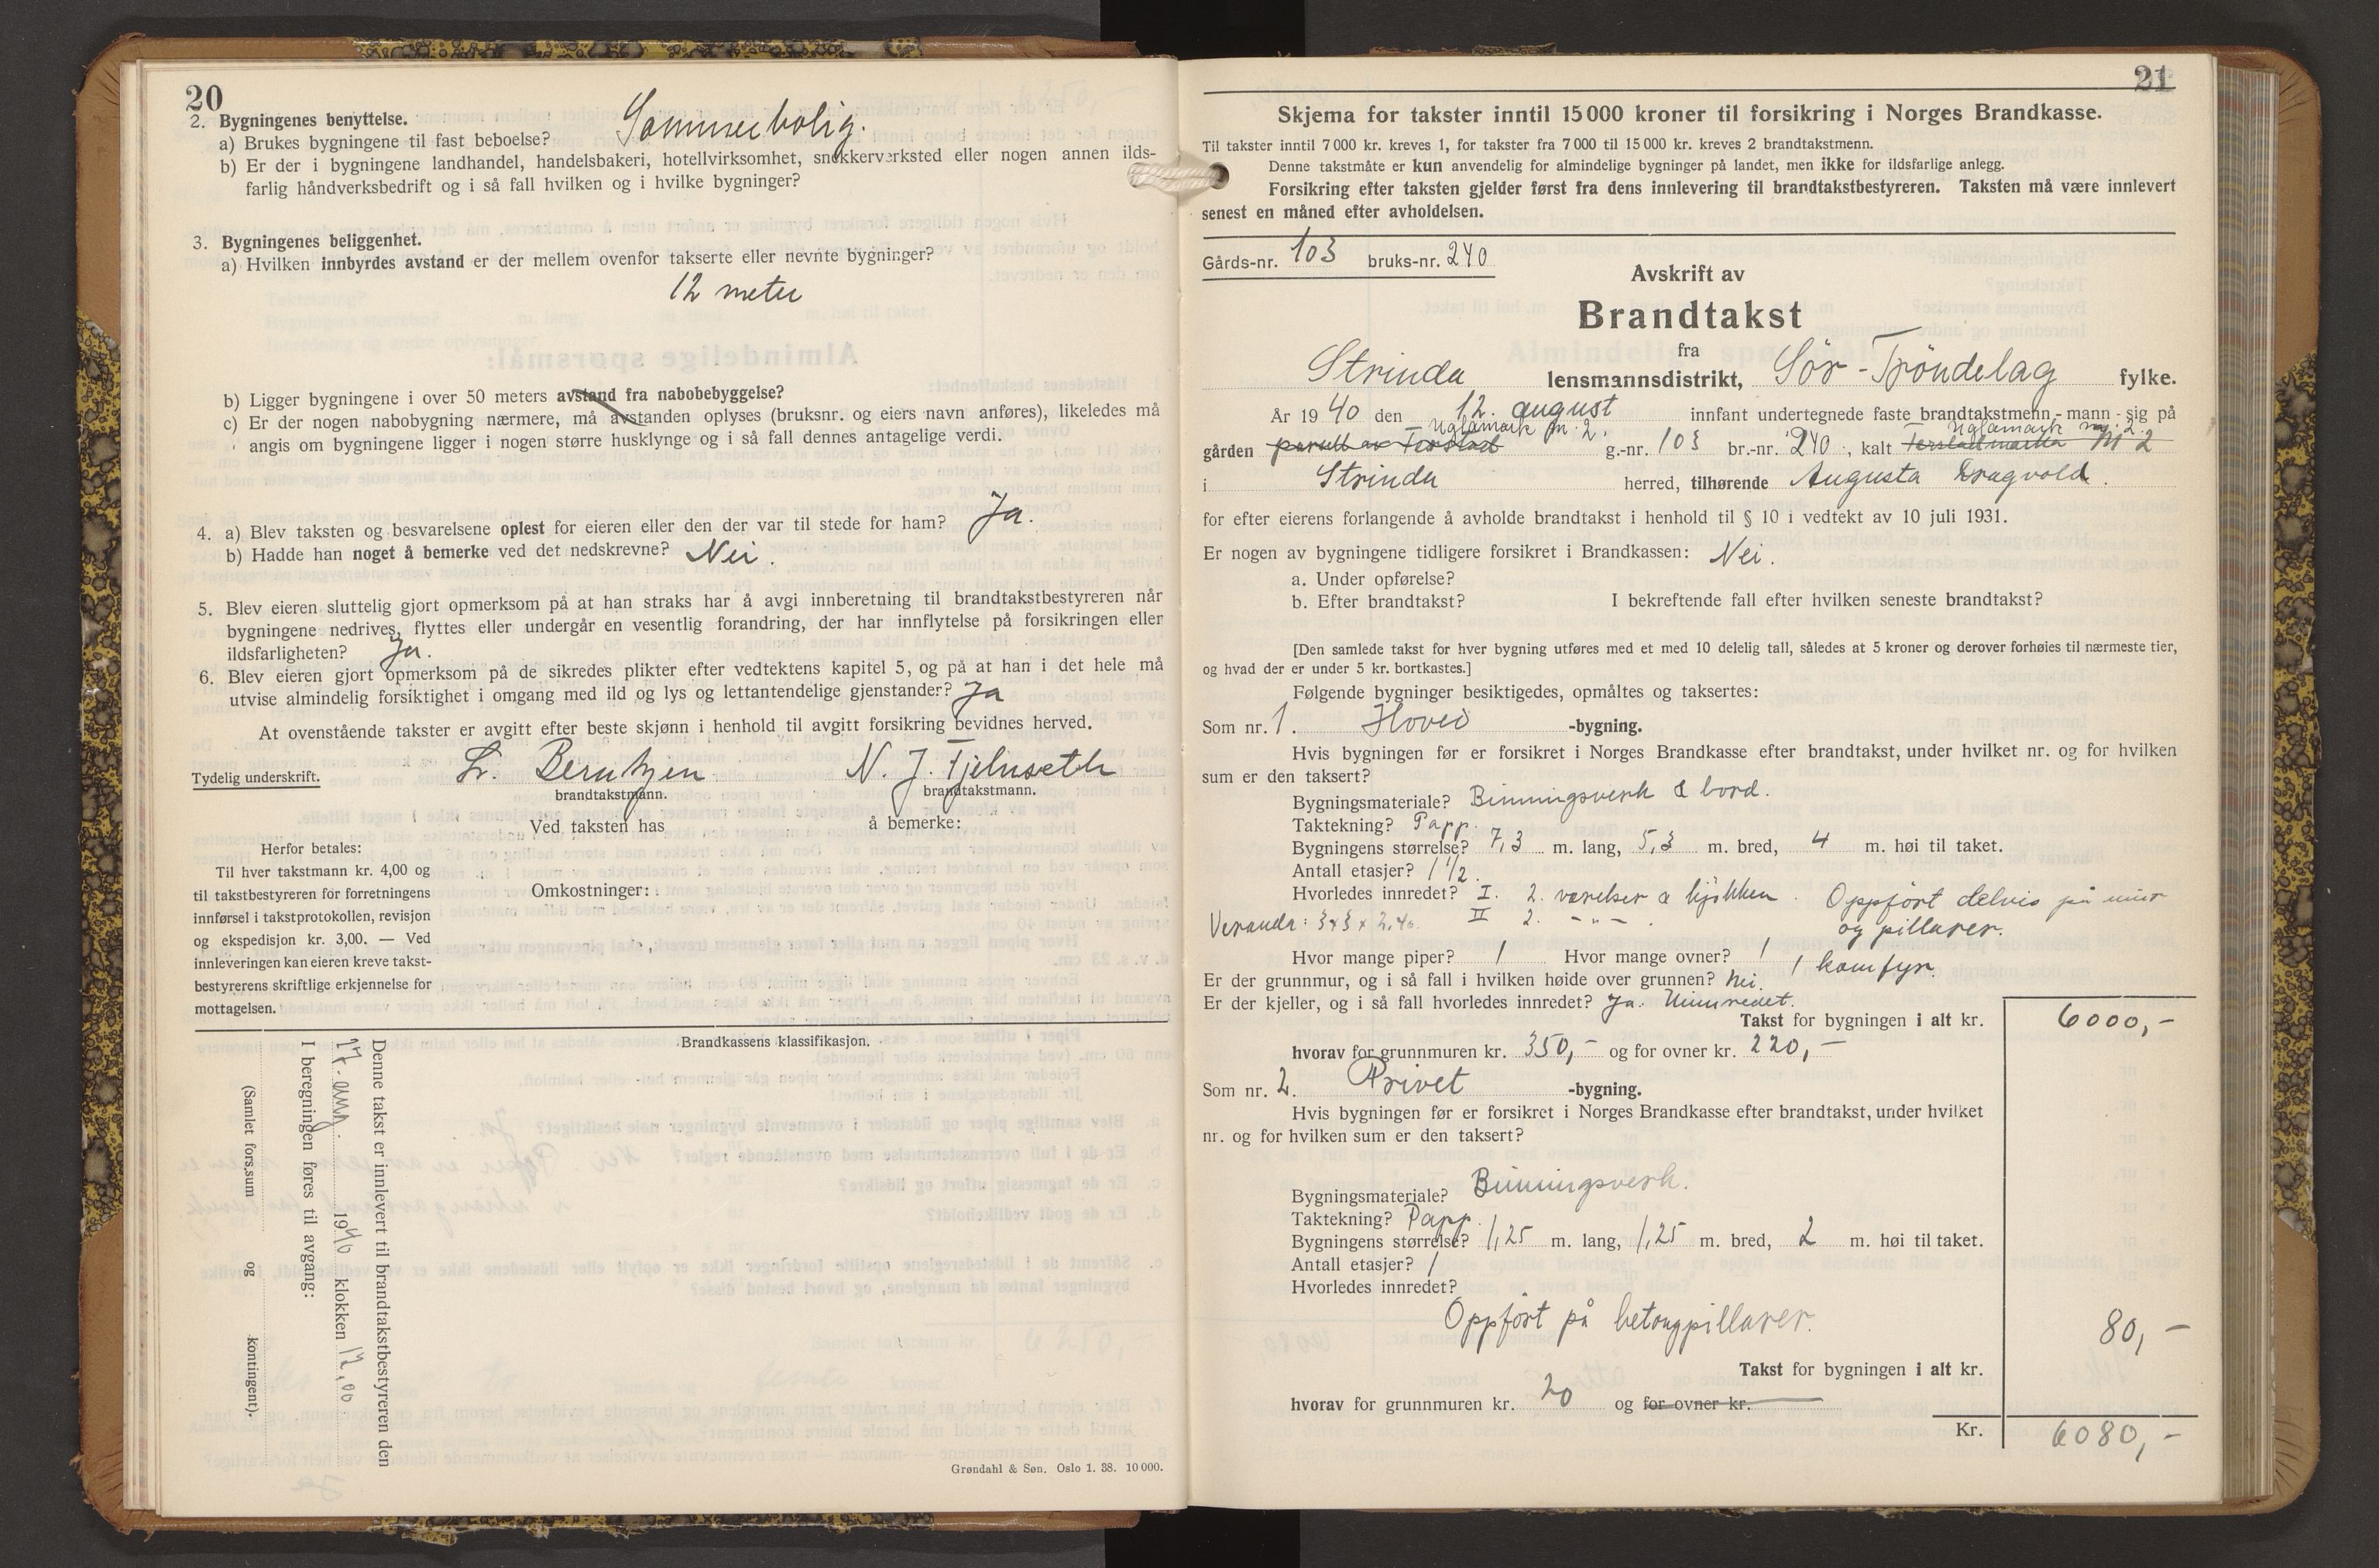 20
2. Bygningenes benyttelse.
a) Brukes bygningene til fast beboelse? Sommerbolig.
b) Er der i bygningene landhandel, handelsbakeri, hotellvirksomhet, snekkerverksted eller nogen annen ilds-
farlig håndverksbedrift og i så fall hvilken og i hvilke bygninger?
3. Bygningenes beliggenhet.
a) Hvilken innbyrdes avstand er der mellem ovenfor takserte eller nevnte bygninger?
12 meter
b) Ligger bygningene i over 50 meters avstand fra nabobebyggelse?
c) Er der nogen nabobygning nærmere, må avstanden oplyses (bruksnr. og eiers navn anføres), likeledes må
angis om bygningene ligger i nogen større husklynge og i så fall dennes antagelige verdi.
4. a) Blev taksten og besvarelsene oplest for eieren eller den der var til stede for ham? Ja.
b) Hadde han noget å bemerke ved det nedskrevne? Nei.
5. Blev eieren sluttelig gjort opmerksom på at han straks har å avgi innberetning til brandtakstbestyreren når
bygningene nedrives, flyttes eller undergår en vesentlig forandring, der har innflytelse på forsikringen eller
ildsfarligheten? Ja.
6. Blev eieren gjort opmerksom på de sikredes plikter efter vedtektens kapitel 5, og på at han i det hele må
utvise almindelig forsiktighet i omgang med ild og lys og lettantendelige gjenstander? Ja
At ovenstående takster er avgitt efter beste skjønn i henhold til avgitt forsikring bevidnes herved.
Tydelig underskrift. L. Berntzen N. J. Fjelnseth
brandtakstmann. brandtakstmann.
Ved taksten has å bemerke:
Herfor betales:
Til hver takstmann kr. 4,00 og
til takstbestyreren for forretningens
innførsel i takstprotokollen, revisjon
og ekspedisjon kr. 3,00. — Ved
innleveringen kan eieren kreve takst-
bestyrerens skriftlige erkjennelse for
mottagelsen.
Omkostninger:
Brandkassens klassifikasjon.
Denne takst er innlevert til brandtakstbestyreren den
17. aug. 1940 klokken 12,00
I beregningen føres til avgang:
(Samlet fors.sum og kontingent).
Grøndahl & Søn. Oslo 1. 38. 10 000.
21
Skjema for takster inntil 15 000 kroner til forsikring i Norges Brandkasse.
Til takster inntil 7 000 kr. kreves 1, for takster fra 7 000 til 15 000 kr. kreves 2 brandtakstmenn.
Denne takstmåte er kun anvendelig for almindelige bygninger på landet, men ikke for ildsfarlige anlegg.
Forsikring efter taksten gjelder først fra dens innlevering til brandtakstbestyreren. Taksten må være innlevert
senest en måned efter avholdelsen.
Gårds-nr. 103 bruks-nr. 240
Avskrift av
Brandtakst
fra
Strinda lensmannsdistrikt, Sör-Tröndelag fylke.
År 1940 den 12. august innfant undertegnede faste brandtakstmenn - mann - sig på
Uglamark nr. 2. Uglamark nr. 2.
gården parsell av Tesstad g.-nr. 103 br.-nr. 240, kalt Tesstadmarka nr 2
i Strinda herred, tilhørende Augusta Dragvold.
for efter eierens forlangende å avholde brandtakst i henhold til § 10 i vedtekt av 10 juli 1931.
Er nogen av bygningene tidligere forsikret i Brandkassen: Nei.
a. Under opførelse?
b. Efter brandtakst? I bekreftende fall efter hvilken seneste brandtakst?
[Den samlede takst for hver bygning utføres med et med 10 delelig tall, således at 5 kroner og derover forhøies til nærmeste tier,
og hvad der er under 5 kr. bortkastes.]
Følgende bygninger besiktigedes, opmåltes og taksertes:
Som nr. 1. Hoved -bygning.
Hvis bygningen før er forsikret i Norges Brandkasse efter brandtakst, under hvilket nr. og for hvilken
sum er den taksert?
Bygningsmateriale? Binningsverk & bord.
Taktekning? Papp.
Bygningens størrelse? 7,3 m. lang, 5,3 m. bred, 4 m. høi til taket.
Antall etasjer? 1 1/2.
Hvorledes innredet? I. 2. værelser & kjökken. Oppfört delvis på mur
Veranda: 3x3x2,40. II 2. - " - . og pillarer.
Hvor mange piper? 1 Hvor mange ovner? 1 1 komfyr.
Er der grunnmur, og i så fall i hvilken høide over grunnen? Nei.
Er der kjeller, og i så fall hvorledes innredet? Ja. Uinnredet.
Takst for bygningen i alt kr. 6000,-
hvorav for grunnmuren kr. 350,- og for ovner kr. 220,-
Som nr. 2. Privet -bygning.
Hvis bygningen før er forsikret i Norges Brandkasse efter brandtakst, under hvilket
nr. og for hvilken sum er den taksert?
Bygningsmateriale? Binningsverk.
Taktekning? Papp.
Bygningens størrelse? 1,25 m. lang, 1,25 m. bred, 2 m. høi til taket.
Antall etasjer? 1
Hvorledes innredet?
Oppfört på betongpillarer.
80,-
Takst for bygningen i alt kr.
hvorav for grunnmuren kr. 20 og for ovner kr.
Kr. 6080,-